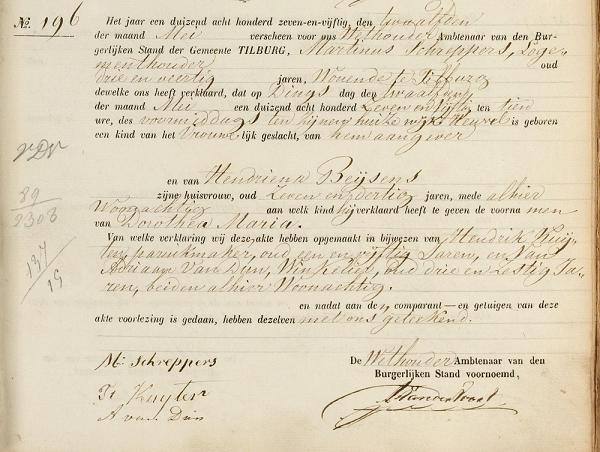 No. 196
Het jaar een duizend acht honderd zeven-en-vijftig, den twaalfden
der maand Mei verscheen voor ons, Wethouder Ambtenaar van den Bur-
gerlijken Stand der Gemeente TILBURG, Martinus Schreppers, Loge-
menthouder oud
drie en veertig jaren, Wonende te Tilburg
dewelke ons heeft verklaard, dat op Dings dag den twaalfden
der maand Mei een duizend acht honderd Zeven en Vijftig ten tien
ure, des voormiddags ten zijnen huize wijk Heuvel is geboren
een kind van het Vrouwelijk geslacht, van hem aangever
en van Hendriena Beijsens
zijne huisvrouw, oud Zeven en dertig jaren, mede alhier
Woonachtig aan welk kind hij verklaard heeft te geven de voorna men
van Dorothea Maria.
Van welke verklaring wij deze akte hebben opgemaakt in bijwezen van Hendrik Kuij-
ten, oud een en vijftig Jaren, en Van
Adriaan Van Dun, Winkelier, oud drie en Zestig Ja-
ren, beiden alhier Woonachtig.
en nadat aan den comparant — en getuigen van deze
akte voorlezing is gedaan, hebben dezelven met ons geteekend.
M. Schreppers
De Wethouder Ambtenaar van den
Burgerlijken Stand voornoemd,
Kuyten
A van Dun
89
2308
197
19